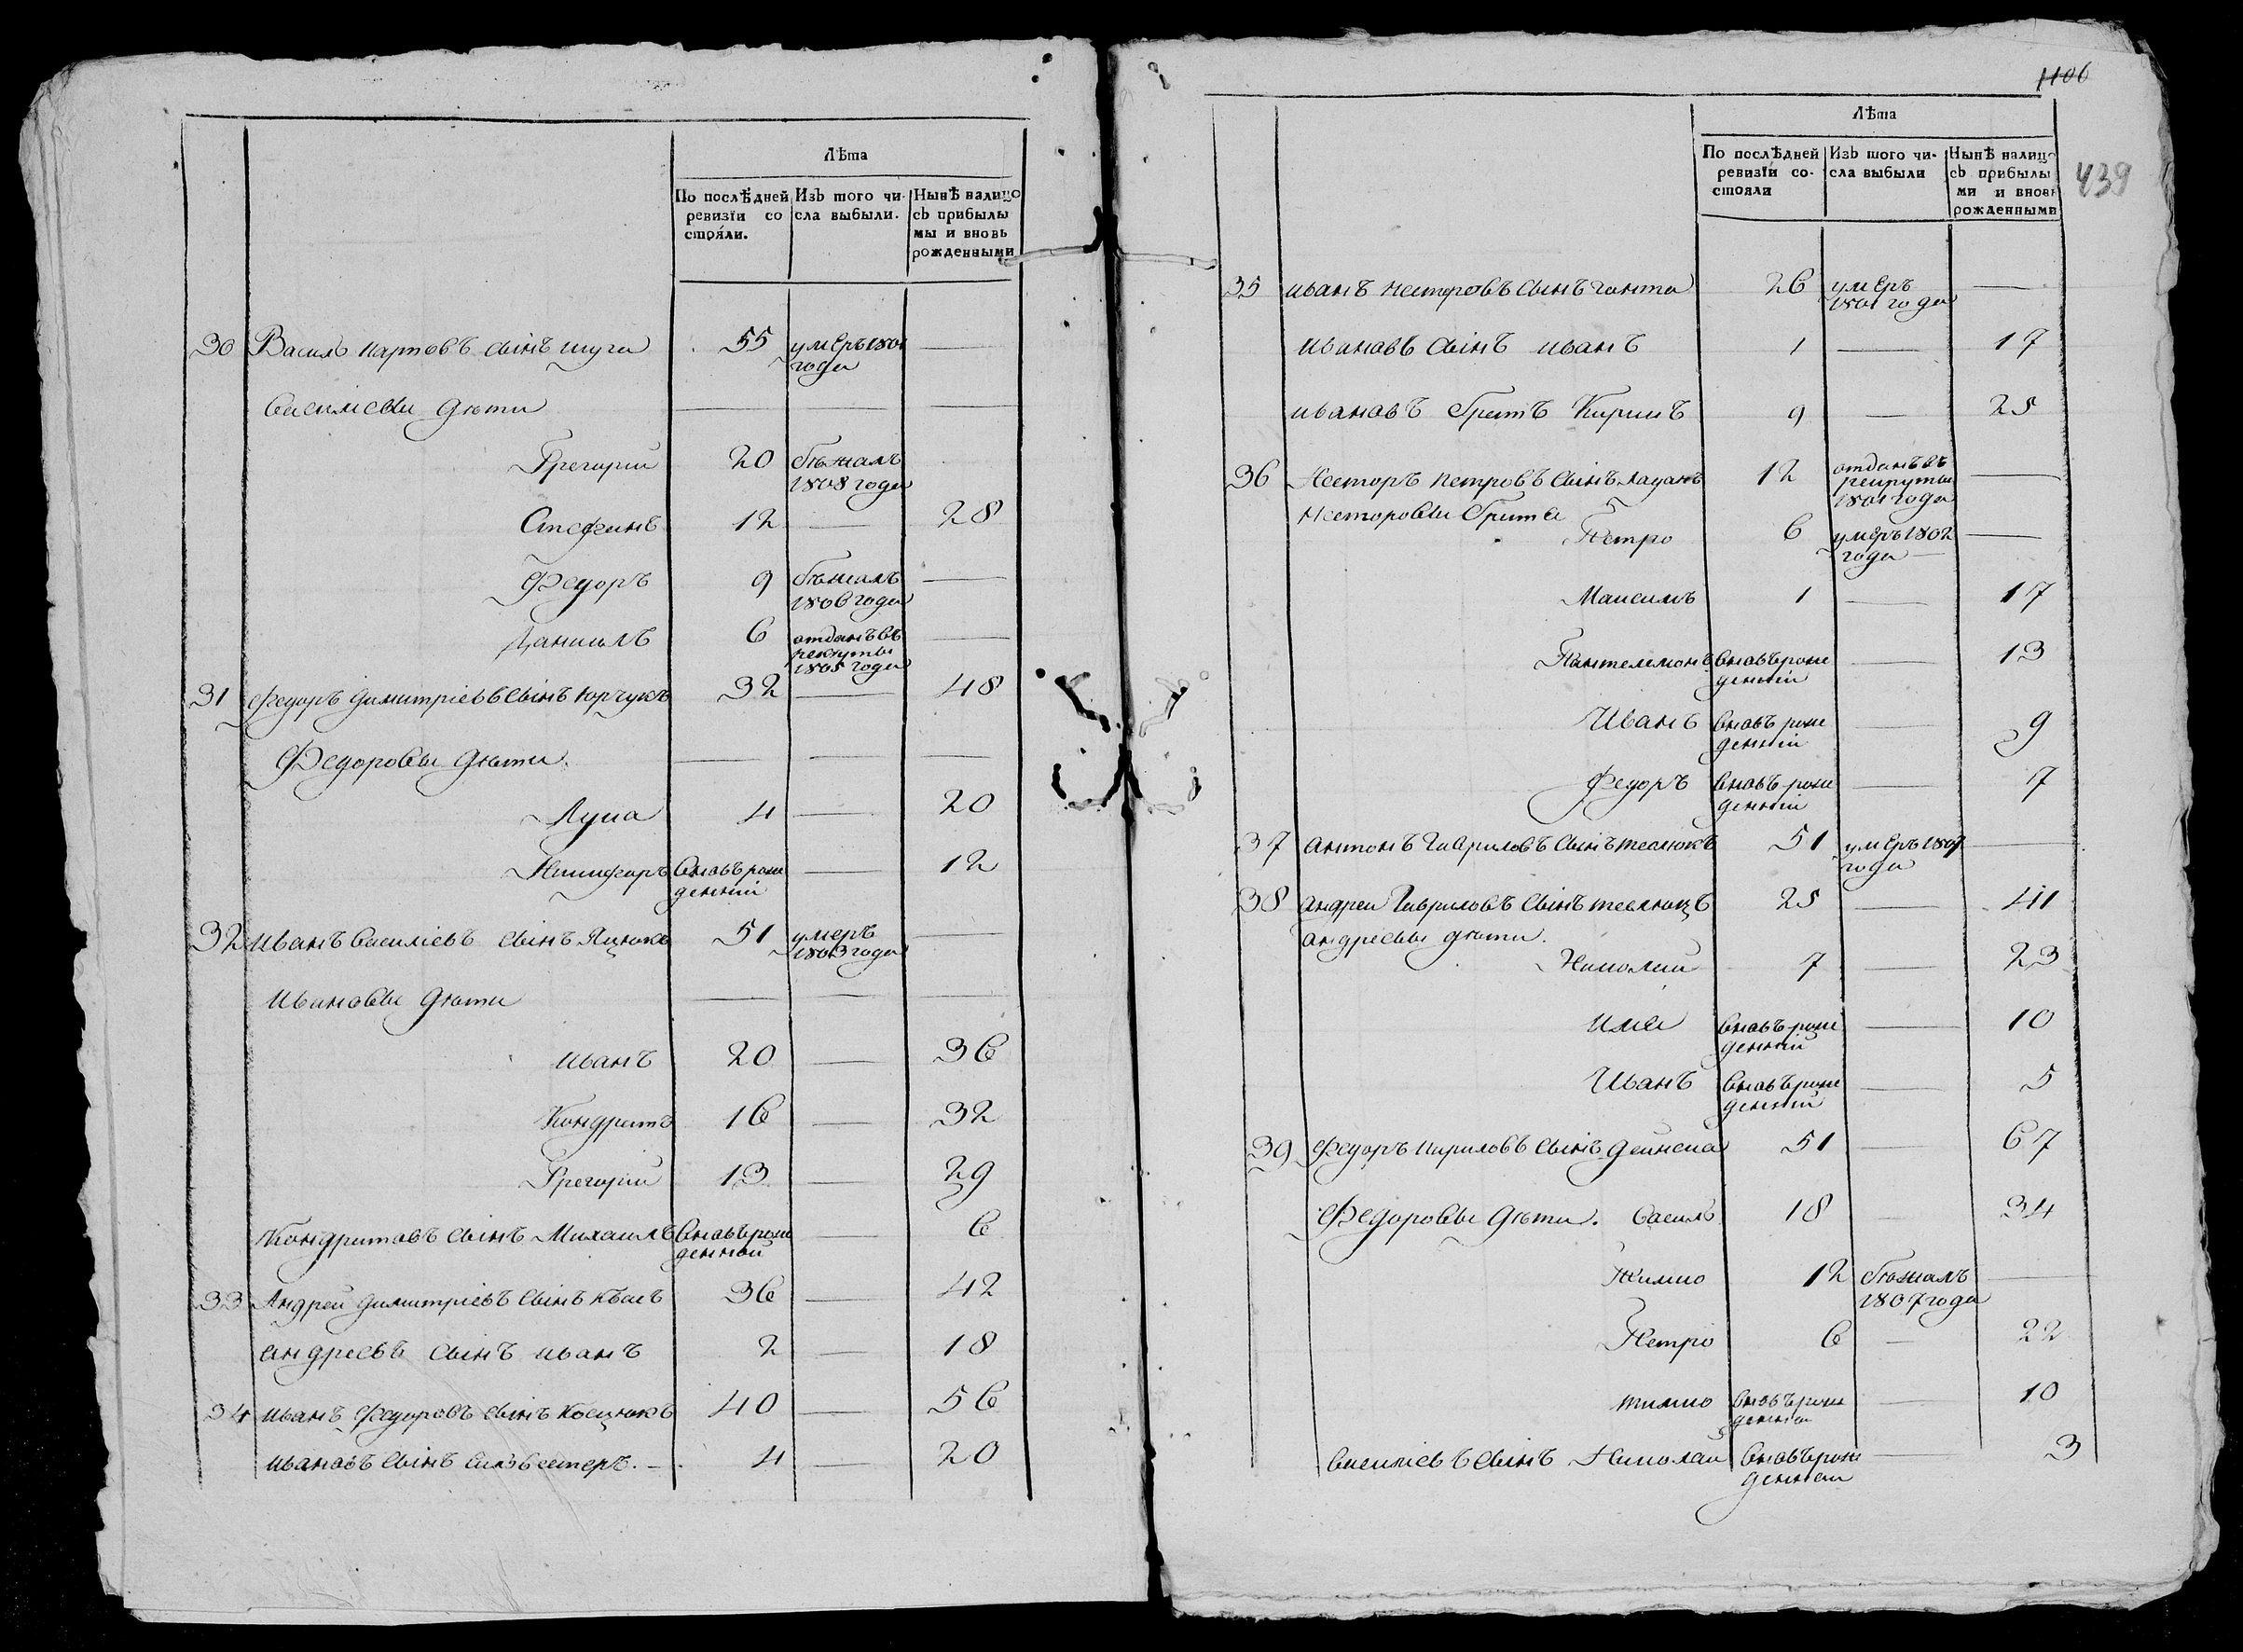 Лѣта
По послѣдней ревизіи со стояли.
Изъ того числа выбыли.
Нынѣ налицо съ прибылы мы и вновь рожденными
30 Василь карповъ сынъ шуга 55 умеръ 180 года —
василеви дѣти — — —
Грегорий 20 бѣжалъ 1808 года
Стефанъ 12 — 28
Федоръ 9 бѣжалъ 1806 года —
Данилъ 6 отданъ въ рекруты 1805 года —
31 Федоръ димитріевъ сынъ юрчукъ 32 — 48
Федоровы дѣти. — — —
Лука 4 — 20
Никифоръ вновь рожденній — 12
32 иванъ василіевъ сынъ яцюкъ 51 умеръ 1803 года —
ивановы дѣти — — —
иванъ 20 — 36
Кондратъ 16 — 32
Грегорий 13 — 29
Кондратовъ сынъ Михаилъ вновь рожденной — 6
33 Андрей димитріевъ сынъ квасъ 36 — 42
андреевъ сынъ иванъ 2 — 18
34 иванъ Федоровъ сынъ косцюкъ 40 — 56
ивановъ сынъ силвестеръ. — 4 — 20
1106
439
Лѣта
По послѣдней ревизіи состояли
Изъ того числа выбыли
Нынѣ налицо съ прибылы ми и вновь рожденными
35 иванъ нестеровъ сынъ ганта 26 умеръ 1801 года —
ивановъ сынъ иванъ 1 — 17
ивановъ братъ Кирикъ 9 — 25
36 Несторъ петровъ сынъ 12 отданъ въ рекруты 1801 года —
Несторовы братя
Петро 6 умеръ 1802 года —
Максимъ 1 — 17
Пантелемонъ вновь рожденній — 13
Иванъ вновь рожденній — 9
Федоръ вновь рожденній — 7
37 антонъ Гавриловъ сынъ теслюкъ 51 умеръ 1807 года —
38 андрей Гавриловъ сынъ теслюкъ 25 — 41
андреевы дѣти.
Николай 7 — 23
илія вновь рожденній — 10
Иванъ вновь рожденній — 5
39 Федоръ кириловъ сынъ дейнека 51 — 67
Федоровы дѣти. василь 18 — 34
Климко 12 бѣжалъ 1807 года —
Петро 6 — 22
тимко вновь рожденній — 10
василіевъ сынъ Николай вновь рожденній — 3